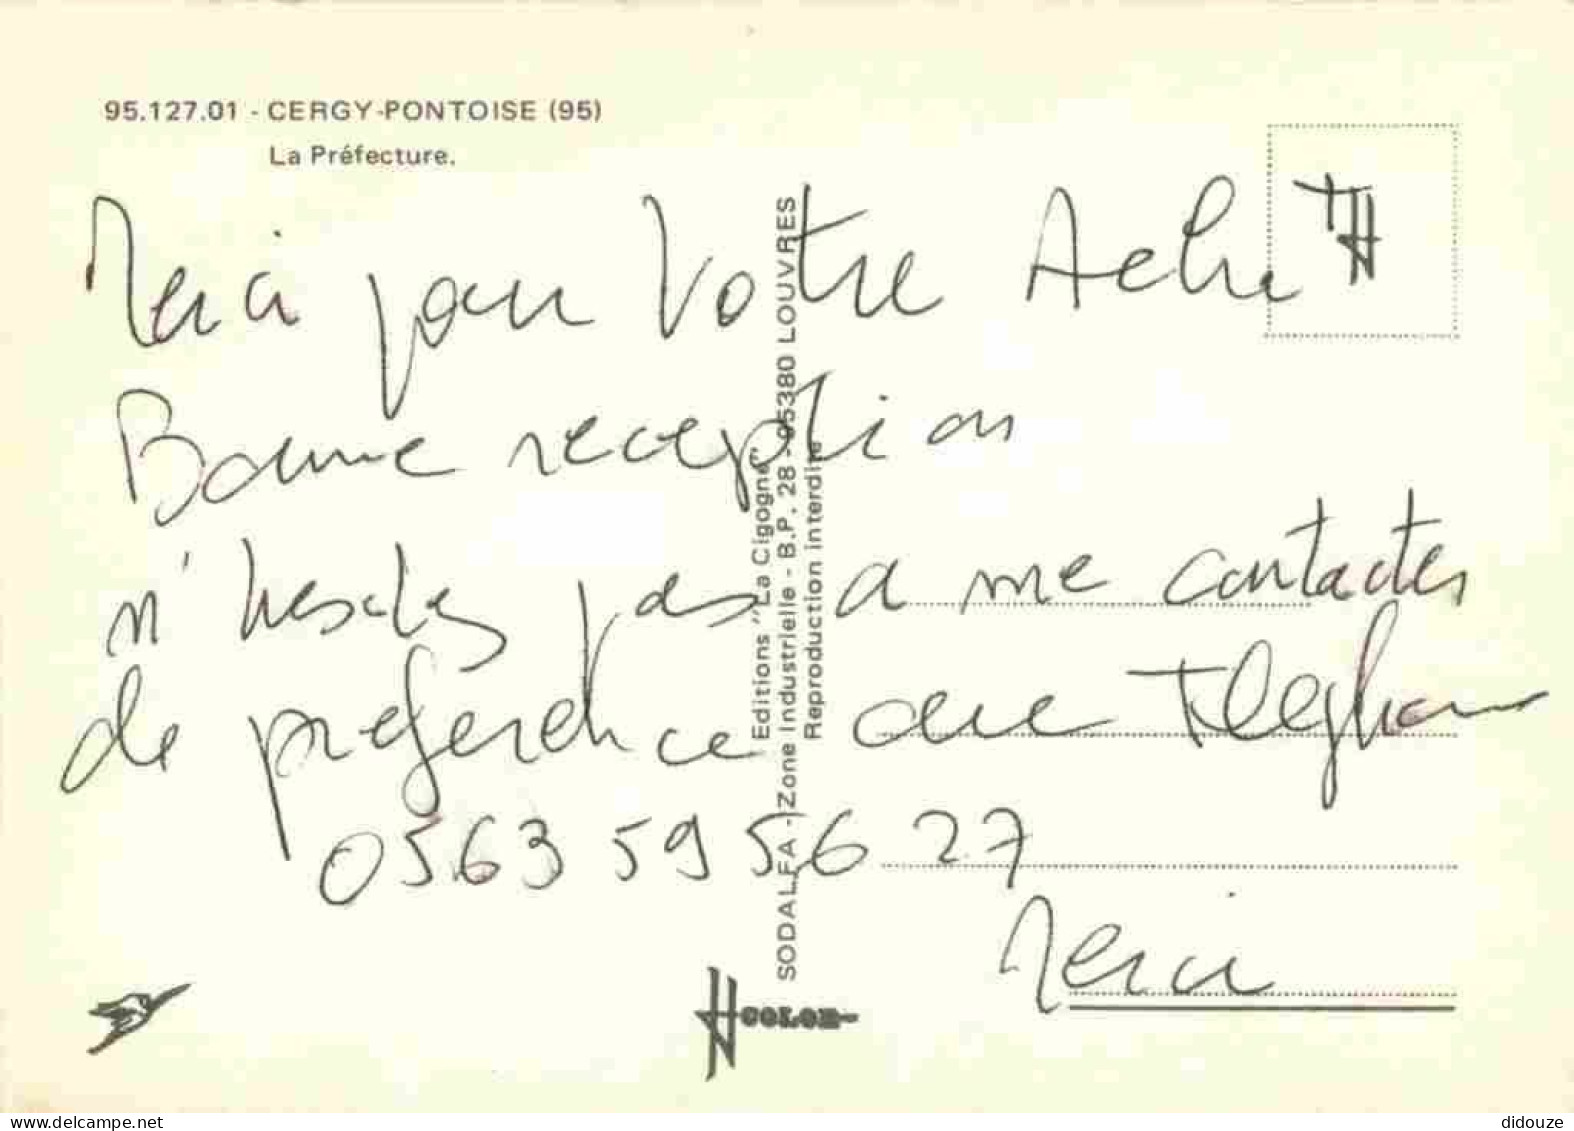 95.127.01 - CERGY-PONTOISE (95)
La Préfecture.
Merci pour Votre Achat
Bonne reception
n'hesitez pas a me contacter
de preference au Telephone
05 63 59 56 27
Merci
Editions "La Cigogne"
SODALFA - Zone Industrielle - B.P. 28 - 95380 LOUVRES
Reproduction interdite
color
delcampe.net
didouze